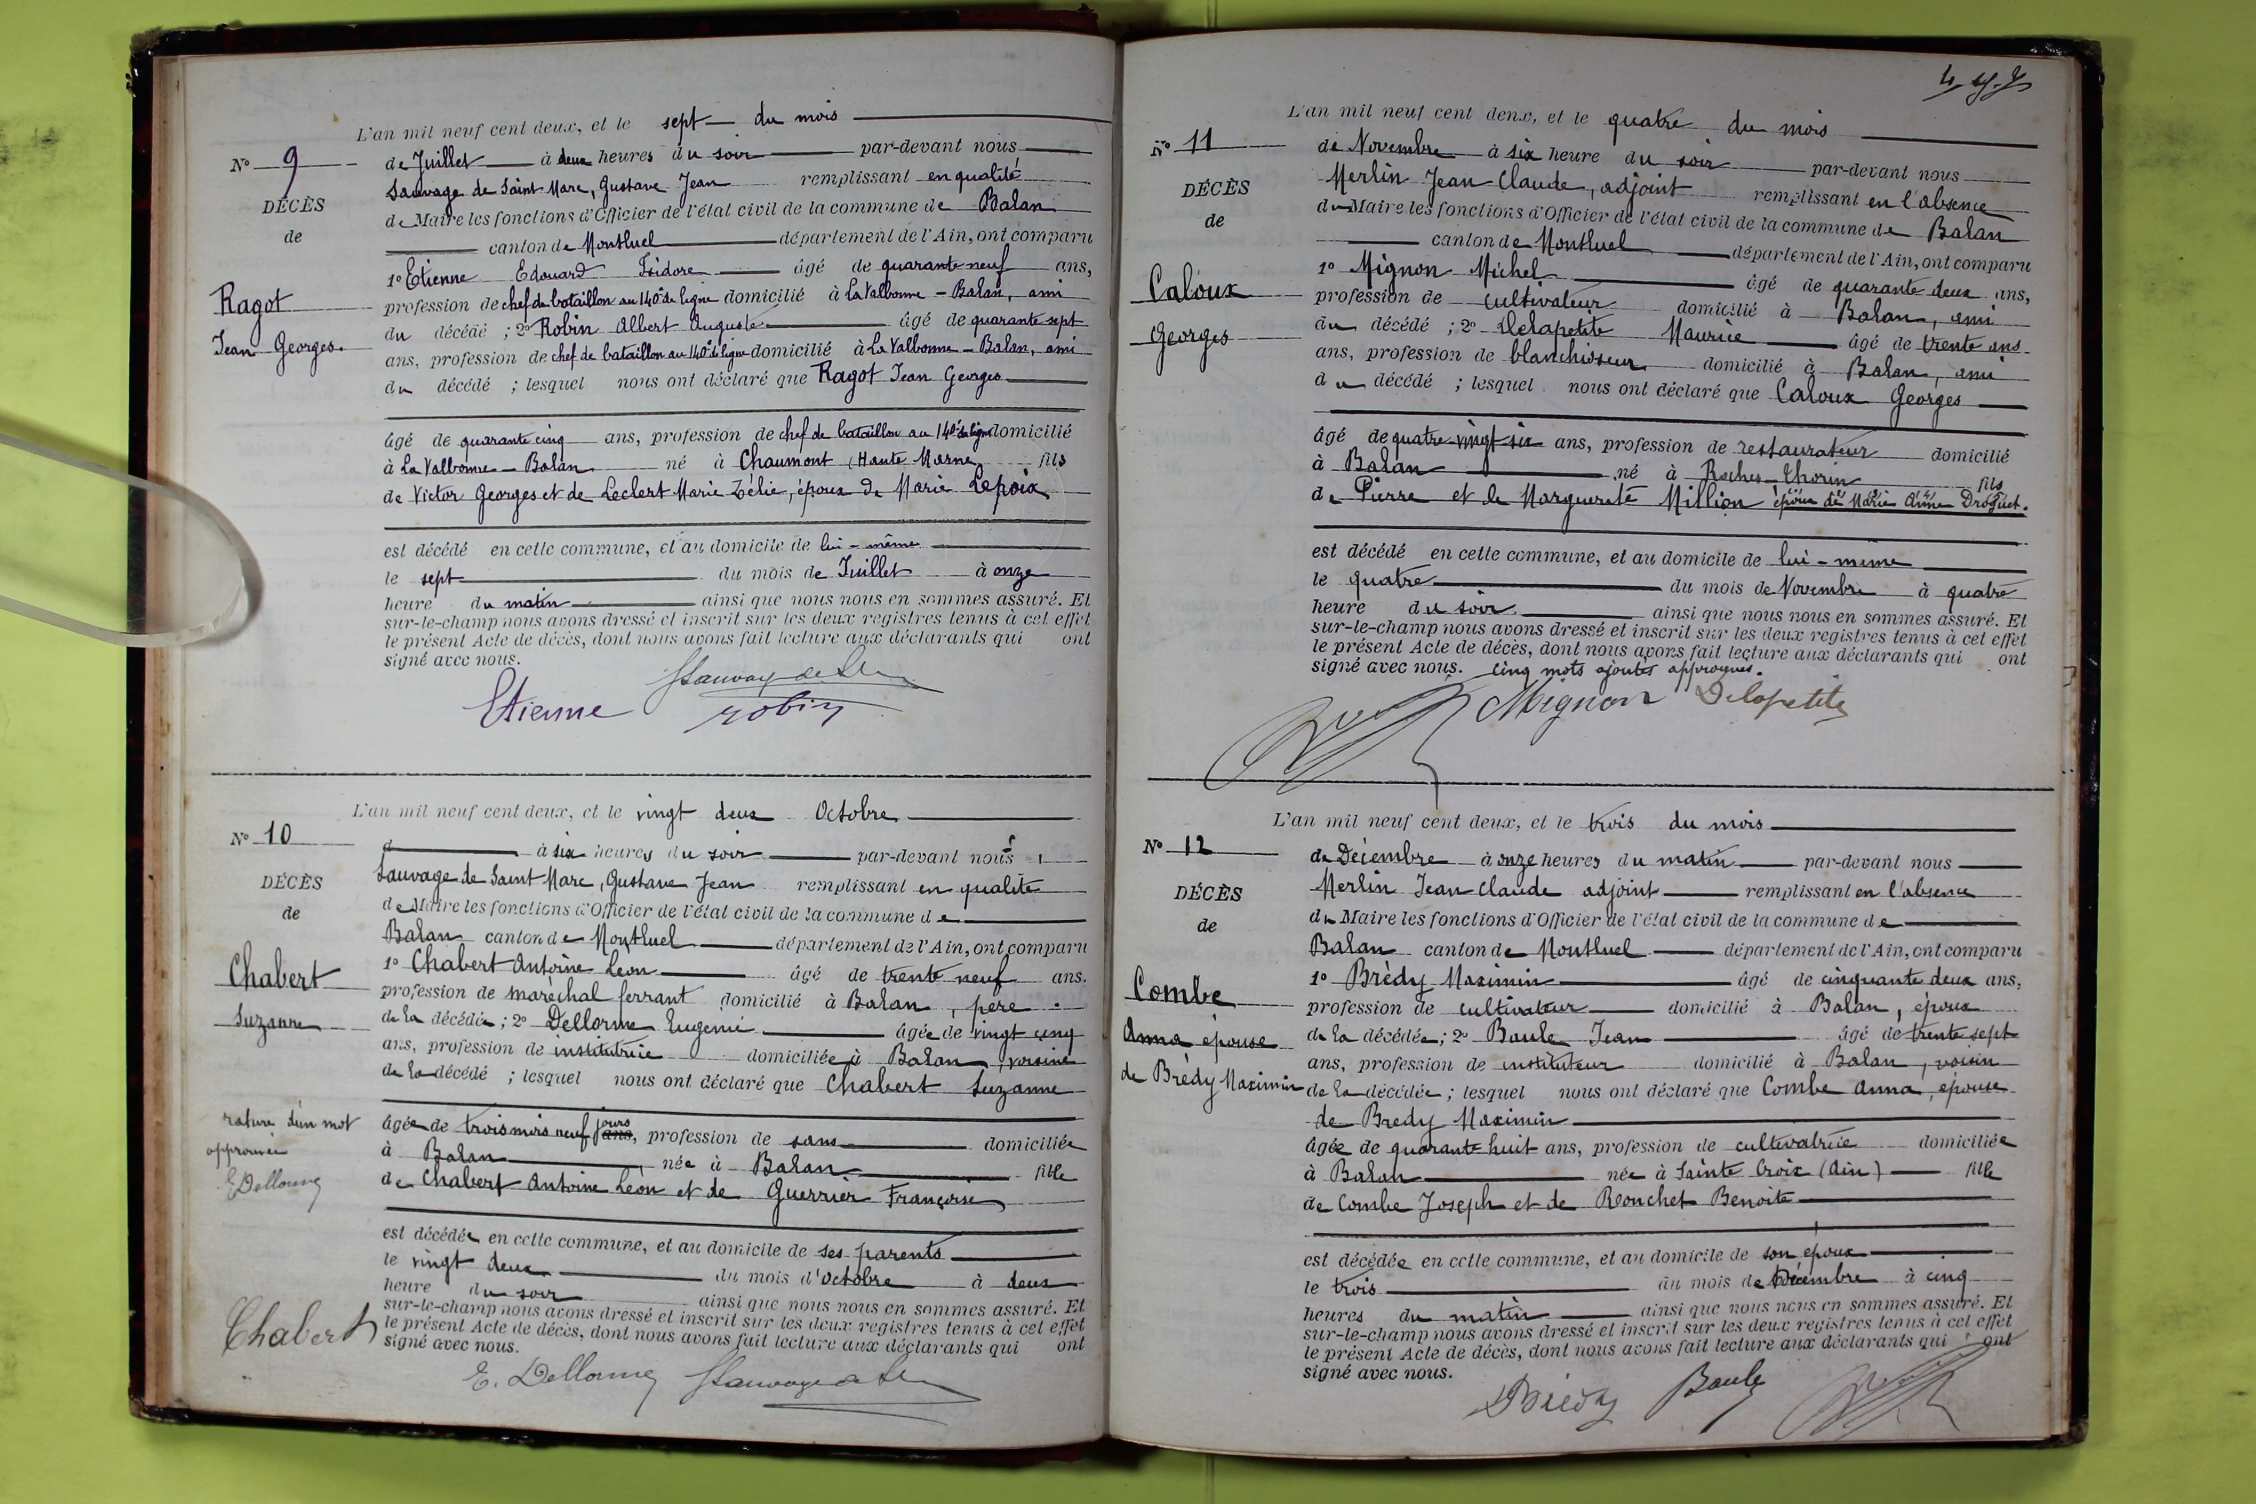 L'an mil neuf cent deux, et le sept du mois
No 9
de Juillet à deux heures du soir par-devant nous
Sauvage de Saint Marc, Gustave Jean remplissant en qualité
DÉCÈS
de Maire les fonctions d'Officier de l'état civil de la commune de Balan
de
canton de Montluel département de l'Ain, ont comparu
1o Etienne Edouard Isidore âgé de quarante neuf ans,
Ragot
profession de chef de bataillon au 140e de ligne domicilié à La Valbonne - Balan, ami
Jean Georges.
du décédé ; 2o Robin Albert Auguste âgé de quarante sept
ans, profession de chef de bataillon au 140e de ligne domicilié à La Valbonne - Balan, ami
du décédé ; lesquel nous ont déclaré que Ragot Jean Georges
âgé de quarante cinq ans, profession de chef de bataillon au 140e de ligne domicilié
à La Valbonne - Balan né à Chaumont (Haute Marne fils
de Victor Georges et de Leclert Marie Zélie, époux de Marie Lepoix
est décédé en cette commune, et au domicile de lui-même
le sept du mois de Juillet à onze
heure du matin ainsi que nous nous en sommes assuré. Et
sur-le-champ nous avons dressé et inscrit sur les deux registres tenus à cet effet
le présent Acte de décès, dont nous avons fait lecture aux déclarants qui ont
signé avec nous.
Etienne robin
L'an mil neuf cent deux, et le vingt deux Octobre
No 10
à six heures du soir par-devant nous
Sauvage de Saint Marc, Gustave Jean remplissant en qualité
DÉCÈS
de Maire les fonctions d'Officier de l'état civil de la commune de
de
Balan canton de Montluel département de l'Ain, ont comparu
Chabert
1o Chabert Antoine Léon âgé de trente neuf ans.
profession de maréchal ferrant domicilié à Balan, père
Suzanne
de la décédée ; 2o Dellorme Eugénie âgée de vingt cinq
ans, profession de institutrice domiciliée à Balan, voisine
de la décédé ; lesquel nous ont déclaré que Chabert Suzanne
rature d'un mot
approuvée
E Dellorme
âgée de trois mois neuf jours ans, profession de sans domiciliée
à Balan née à Balan fille
de Chabert Antoine Léon et de Guerrier Françoise
est décédée en cette commune, et au domicile de ses parents
le vingt deux du mois d'Octobre à deux
heure du soir ainsi que nous nous en sommes assuré. Et
sur-le-champ nous avons dressé et inscrit sur les deux registres tenus à cet effet
le présent Acte de décès, dont nous avons fait lecture aux déclarants qui ont
signé avec nous.
Chabert
E. Dellorme
L'an mil neuf cent deux, et le quatre du mois
No 11
de Novembre à six heure du soir par-devant nous
Merlin Jean Claude, adjoint remplissant en l'absence
DÉCÈS
du Maire les fonctions d'Officier de l'état civil de la commune de Balan
de
canton de Montluel département de l'Ain, ont comparu
1o Mignon Michel âgé de quarante deux ans,
Caloux
profession de cultivateur domicilié à Balan, ami
Georges
du décédé ; 2o Delapetite Maurice âgé de trente ans
ans, profession de blanchisseur domicilié à Balan, ami
du décédé ; lesquel nous ont déclaré que Caloux Georges
âgé de quatre-vingt-six ans, profession de restaurateur domicilié
à Balan né à Roches-Thorin fils
de Pierre et de Marguerite Million époux de Marie Anne Droguet.
est décédé en cette commune, et au domicile de lui-même
le quatre du mois de Novembre à quatre
heure du soir ainsi que nous nous en sommes assuré. Et
sur-le-champ nous avons dressé et inscrit sur les deux registres tenus à cet effet
le présent Acte de décès, dont nous avons fait lecture aux déclarants qui ont
signé avec nous. cinq mots ajoutés approuvés.
Mignon Delapetite
L'an mil neuf cent deux, et le trois du mois
No 12
de Décembre à onze heures du matin par-devant nous
Merlin Jean Claude adjoint remplissant en l'absence
DÉCÈS
du Maire les fonctions d'Officier de l'état civil de la commune de
de
Balan canton de Montluel département de l'Ain, ont comparu
Combe
1o Brédy Maximin âgé de cinquante deux ans,
profession de cultivateur domicilié à Balan, époux
Anna épouse
de la décédée ; 2o Baule Jean âgé de trente sept
ans, profession de instituteur domicilié à Balan, voisin
de Brédy Maximin
de la décédée ; lesquel nous ont déclaré que Combe Anna, épouse
de Bredy Maximin
âgée de quarante huit ans, profession de cultivatrice domiciliée
à Balan née à Sainte Croix (Ain) fille
de Combe Joseph et de Ronchet Benoite
est décédée en cette commune, et au domicile de son époux
le trois du mois de Décembre à cinq
heures du matin ainsi que nous nous en sommes assuré. Et
sur-le-champ nous avons dressé et inscrit sur les deux registres tenus à cet effet
le présent Acte de décès, dont nous avons fait lecture aux déclarants qui ont
signé avec nous.
Brédy Baule